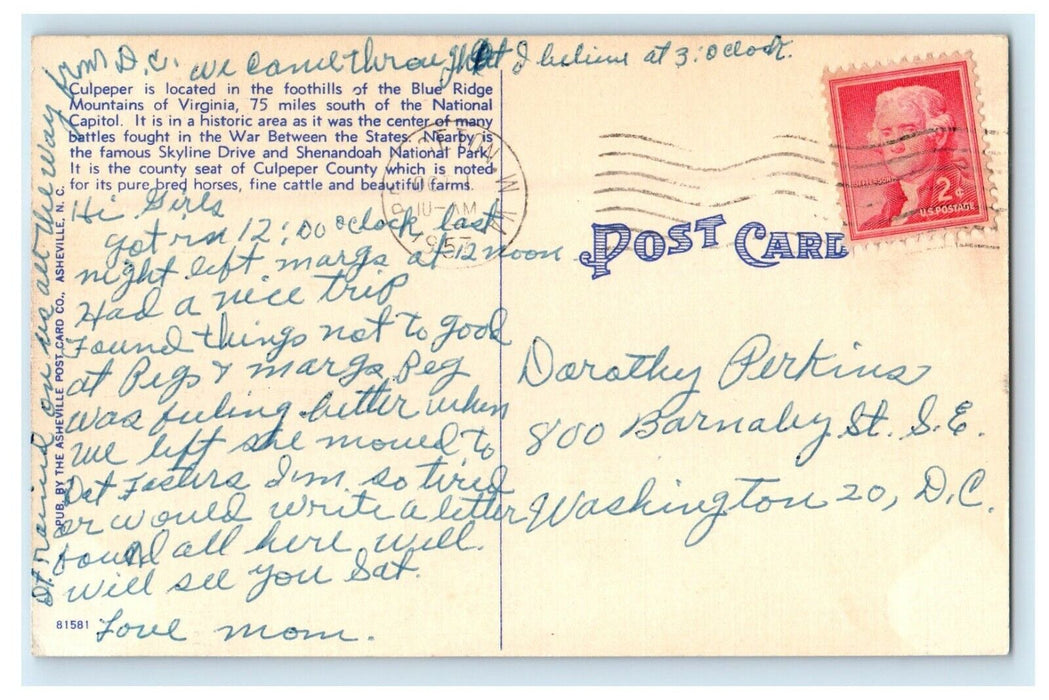 from D.C. we came through at I believe at 3:oclock.
Culpeper is located in the foothills of the Blue Ridge
Mountains of Virginia, 75 miles south of the National
Capitol. It is in a historic area as it was the center of many
battles fought in the War Between the States. Nearby is
the famous Skyline Drive and Shenandoah National Park.
It is the county seat of Culpeper County which is noted
for its pure bred horses, fine cattle and beautiful farms.
Hi Girls
got in 12:00 oclock last
night left margs at 12 noon
Had a nice trip
Found things not to good
at Pegs & margs. Peg
was feeling better when
we left she moved to
Dot Fosters I'm so tired
or would write a letter
found all here well.
will see you Sat.
Love mom.
It rained on us all the way
PUB. BY THE ASHEVILLE POST CARD CO., ASHEVILLE, N. C.
81581
10-AM
1957
2¢
U.S. POSTAGE
POST CARD
Dorothy Perkins
800 Barnaby St. S.E.
Washington 20, D.C.